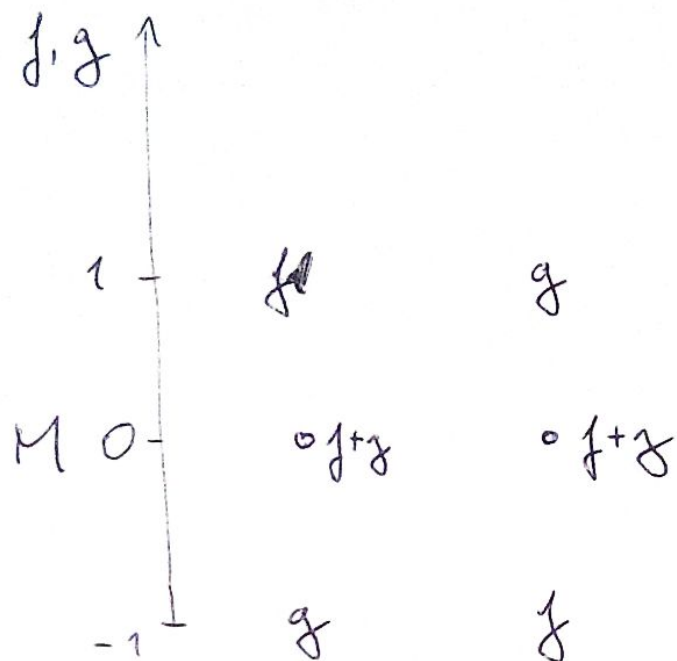 f, g
1 f g
M 0 f+g f+g
-1 g f